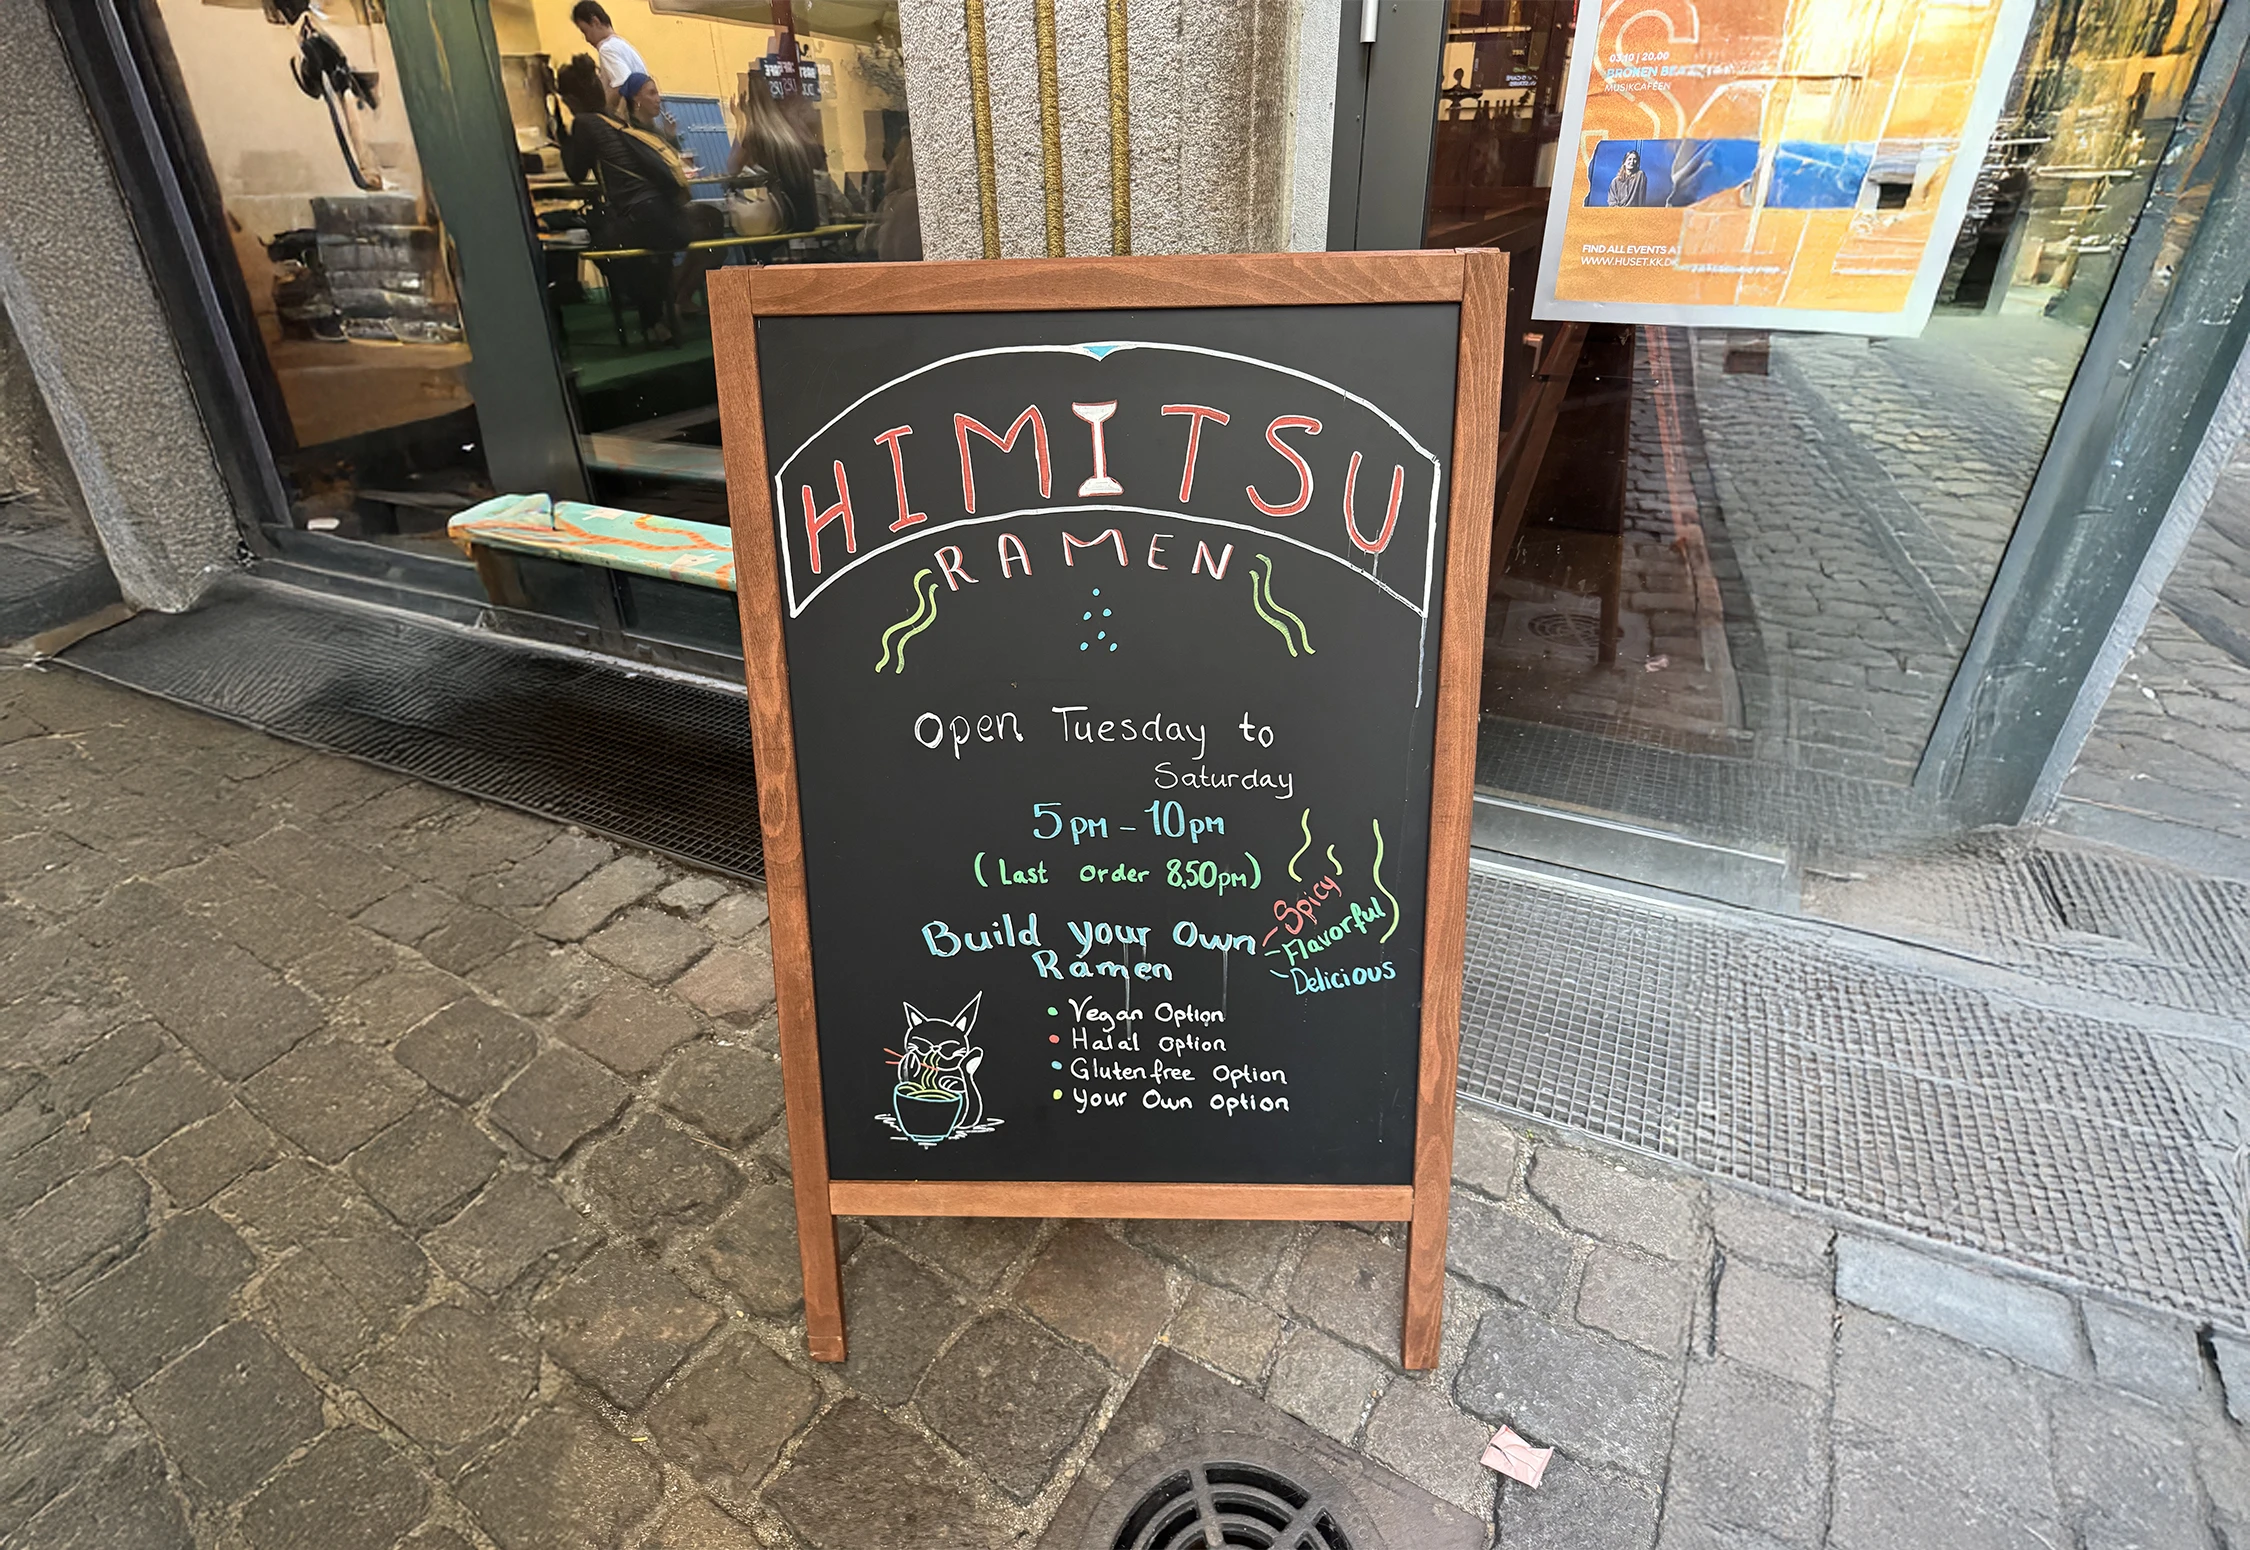 HIMITSU
RAMEN
Open Tuesday to
Saturday
5pm - 10pm
(Last order 8.50pm)
Build your Own
Ramen
- Spicy
- Flavorful
- Delicious
• Vegan Option
• Halal option
• Gluten free Option
• your Own option
03.10 | 20.00
BROKEN
MUSIKCAFEEN
FIND ALL EVENTS AT
WWW.HUSET.KK.DK